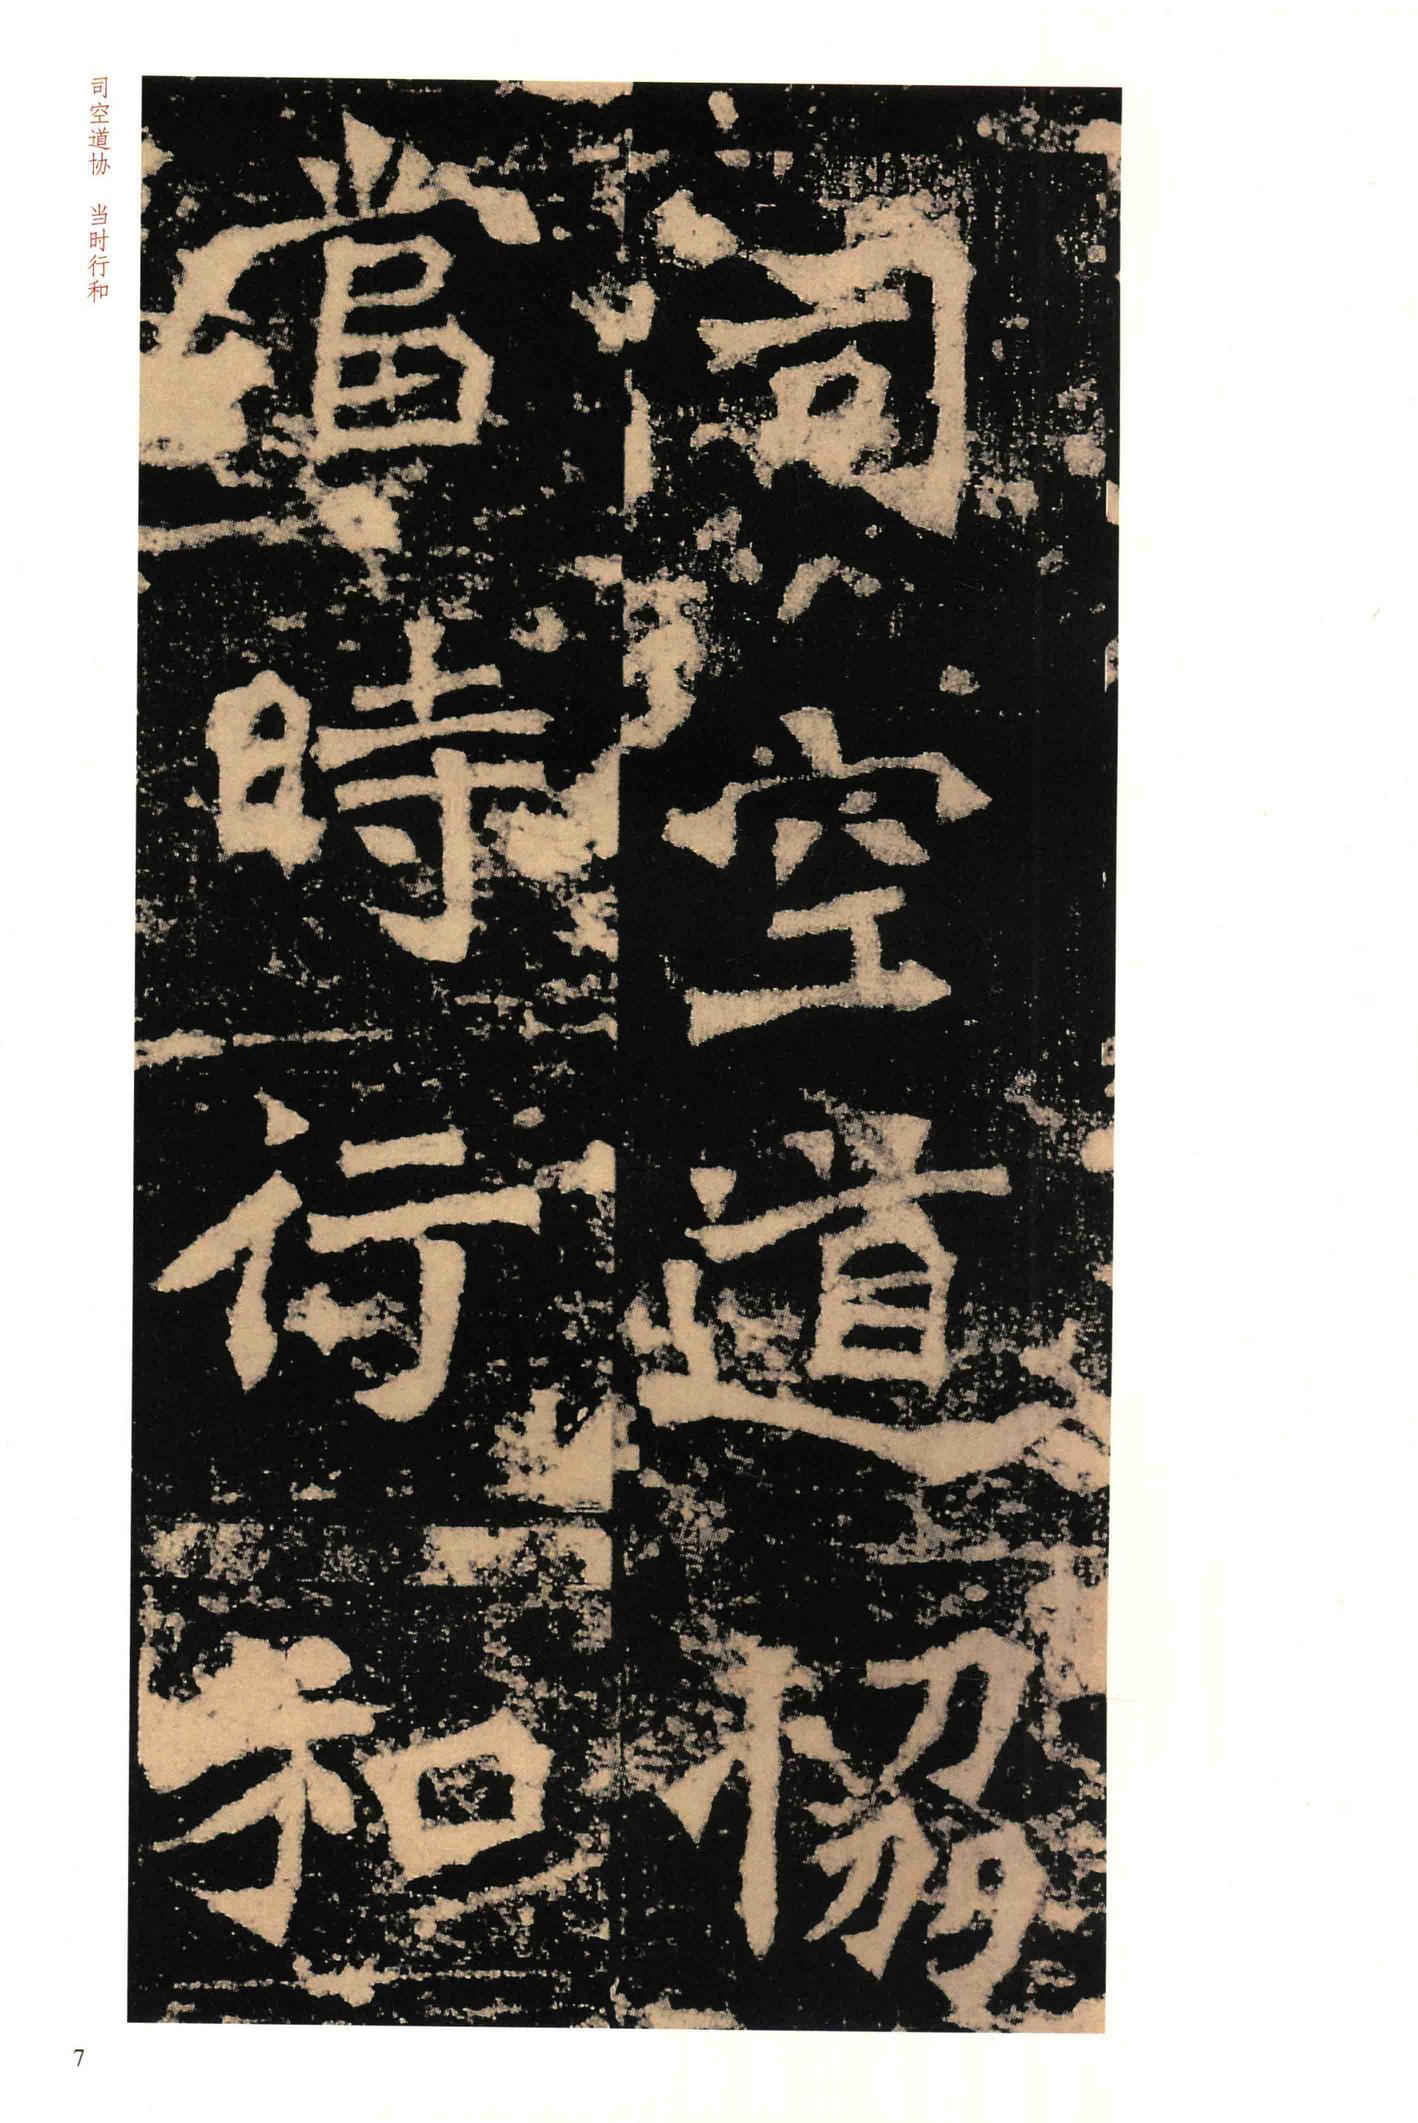 司空道協
當時行和
司空道协 当时行和
7